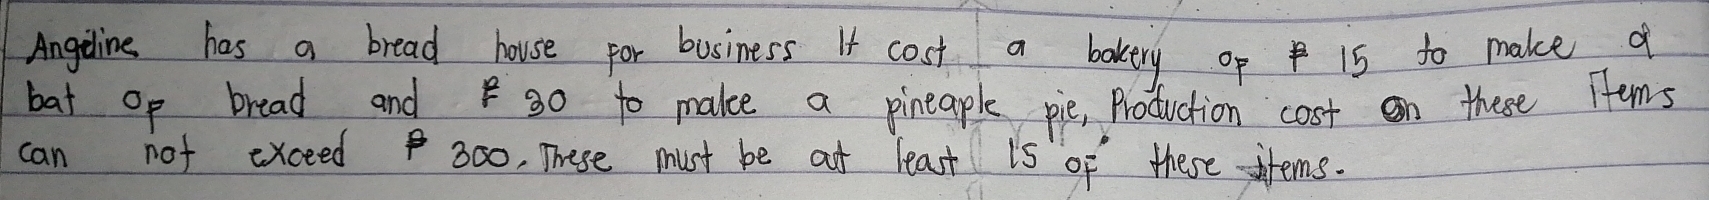 Angeline has a bread house for business It cost a bakery of ₱ 15 to make a
bat of bread and ₱ 30 to make a pineaple pie, Production cost on these Items
can not exceed ₱ 300. These must be at least 15 of these items.